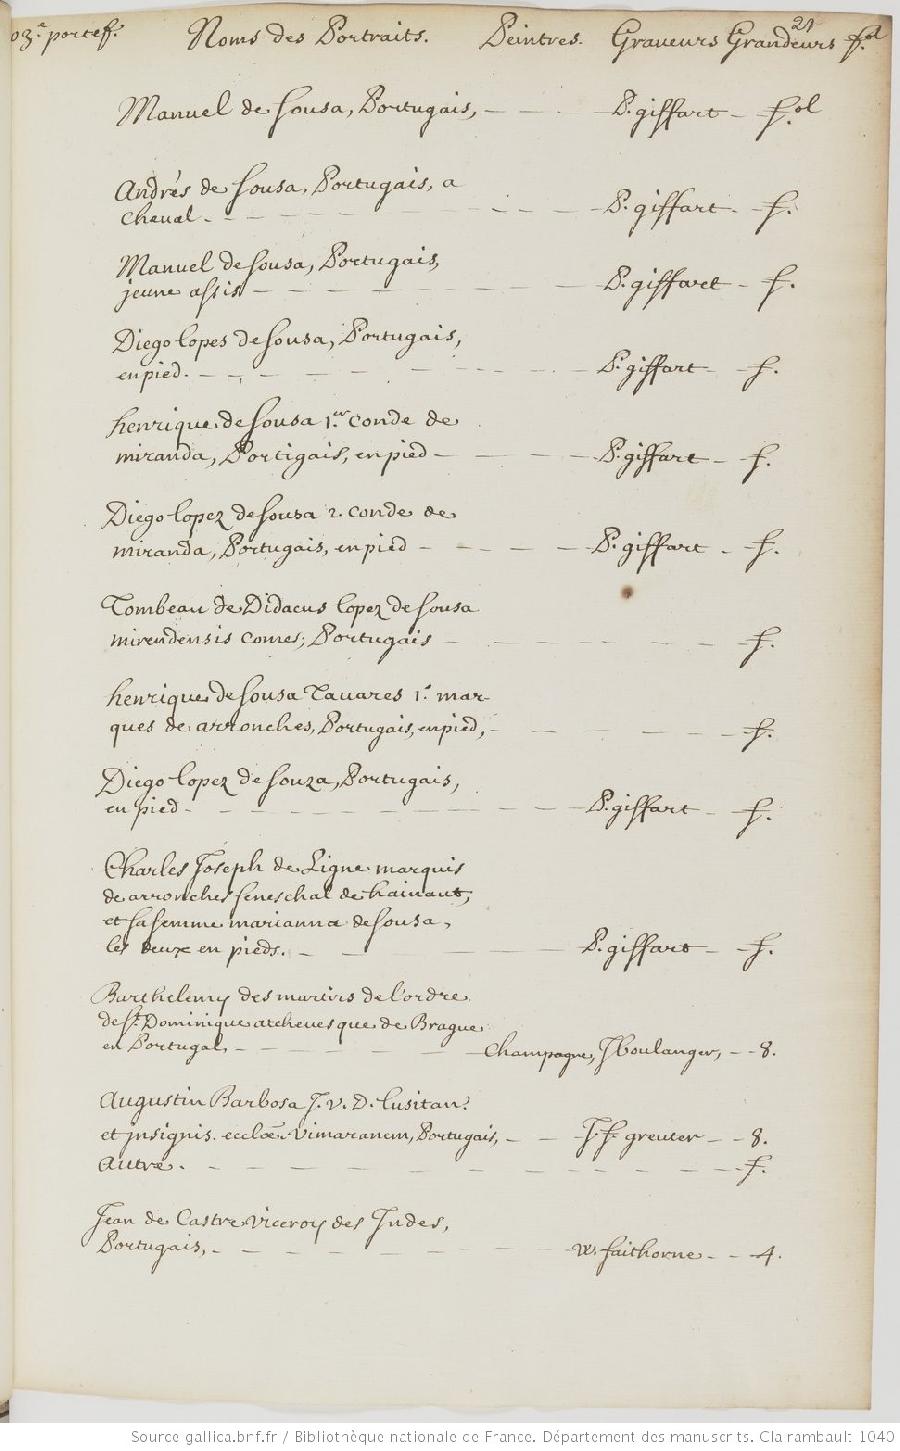 03.e portef. Noms des Portraits. Peintres. Graveurs Grandeurs f.ol
21
Manuel de Sousa, Portugais, - - - P. giffart - f.ol
Andrés de Sousa, Portugais, a
cheval - - - P. giffart - f.
Manuel de Sousa, Portugais,
jeune assis - - - P. giffart - f.
Diego lopes de Sousa, Portugais,
en pied. - - - P. giffart - f.
henrique de Sousa 1.er conde de
miranda, Portigais, en pied - - - P. giffart - f.
Diego lopez de Sousa 2. conde de
miranda, Portugais, en pied - - - P. giffart - f.
Tombeau de Didacus lopez de Sousa
mirendensis comes, Portugais - - - f.
henrique de Sousa Tavares 1.r mar-
ques de arronches, Portugais, en pied, - - - f.
Diego lopez de Souza, Portugais,
en pied - - - P. giffart - f.
Charles Joseph de Ligne marquis
de arronches seneschal de hainaut,
et sa femme marianna de Sousa,
les deux en pieds. - - - P. giffart - f.
Barthelemy des martirs de l'ordre
de St. Dominique archevesque de Brague
en Portugal, - - - Champagne, J boulanger, - - 8.
Augustin Barbosa J. V. D. lusitan.
et insignis. eccloe. Vimaranem, Portugais, - - J. f. greuter - - 8.
autre. - - - f.
Jean de Castre viceroy des Indes,
Portugais, - - - W. faithorne - - 4.
Source gallica.bnf.fr / Bibliothèque nationale de France. Département des manuscrits. Clairambault 1040